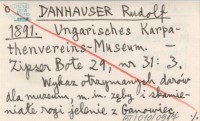 DANHAUSER Rudolf
1891. Ungarisches Karpa-
thenvereins-Museum. –
Zipser Bote 29, nr 31: 3.
Wykaz otrzymanych darów
dla muzeum, m.in. zęby i skamie-
niałe rogi jelenie z Ganowiec.